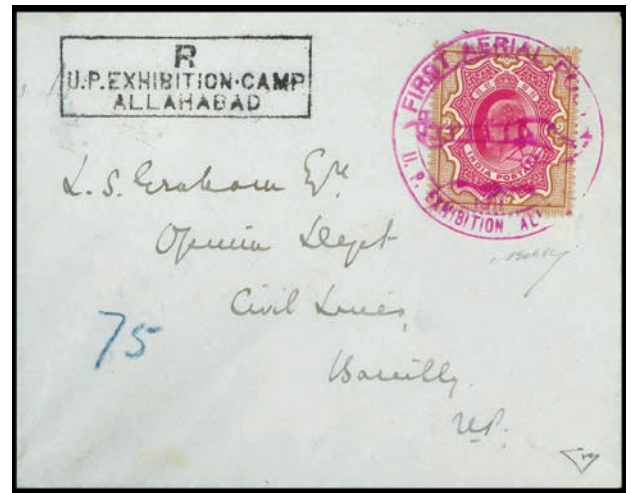 R
U.P. EXHIBITION·CAMP
ALLAHABAD
FIRST AERIAL
INDIA POSTAGE
U. P. EXHIBITION ALL
L. S. Graham Esq.
Opium Dept
Civil Lines,
Bareilly.
U.P.
75